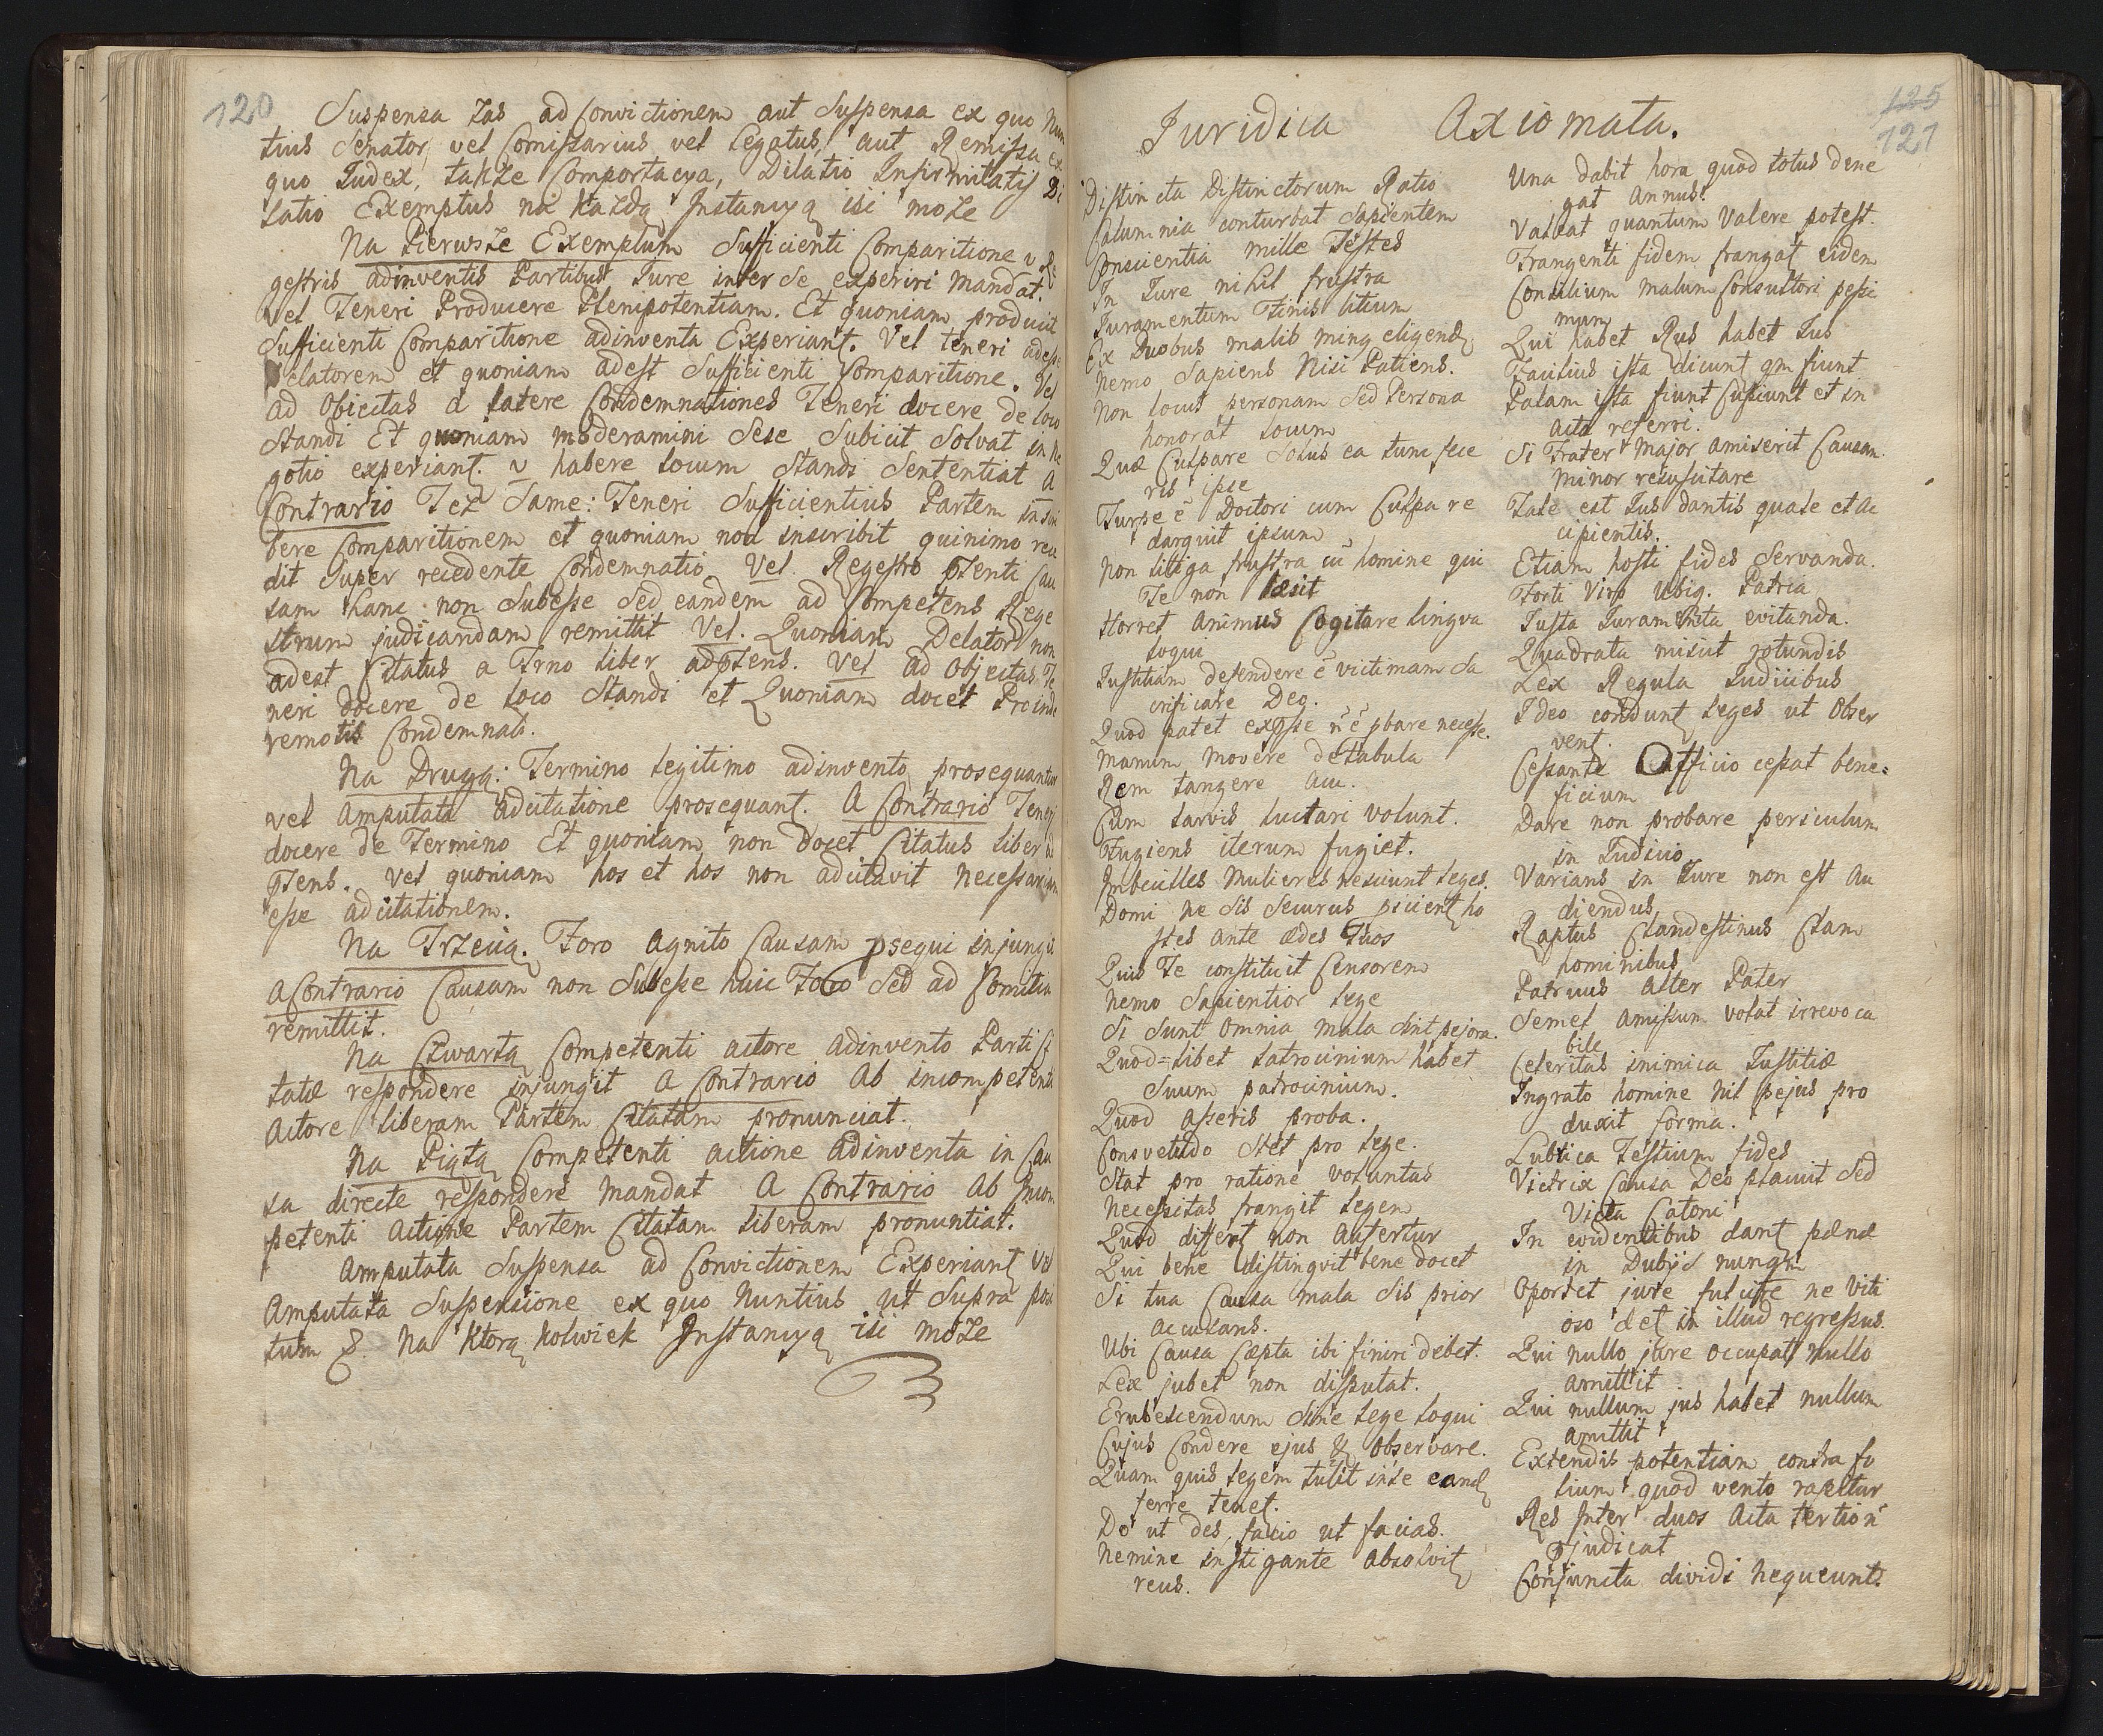 120
Suspensa zas ad Convictionem aut Suspensa ex quo Nun
tius Senator, vel Comissarius vel Legatus, aut Remissa ex
quo Judex, takze Comportacya, Dilatio Infirmitatis Di
latio Exemptus na Kazdą Instancyą iść może
Na Pierwsze Exemplum Sufficienti Comparitione v Re
gestris adinventis Partibus Jure inter se experiri mandat.
Vel Teneri Producere Plenipotentiam. Et quoniam producit
Sufficienti Comparitione adinventa Experiant. Vel teneri adesse
Delatorem et quoniam adest Sufficienti Comparitione. Vel
ad Obiectas a latere Condemnationes Teneri docere de loco
Standi Et quoniam moderamini Sese Subicit Solvat in ne
gotio experiant. v habere locum Standi Sententiat A
Contrario Tez Same: Teneri Sufficientius Partem inscri
bere Comparitionem et quoniam non inscribit quinimo rece
dit Super recedente Condemnatio Vel. Regestro ptenti Cau
sam hanc non Subesse Sed eandem ad Competens Rege
strum judicandam remittit Vel. Quoniam Delator non
adest Citatus a Trno liber adptens. Vel ad Objectas Te
neri docere de loco Standi et Quoniam docet Proinde
remotis Condemnab.
Na Drugą: Termino legitimo adinvento prosequantur
vel Amputata adcitatione prosequant. A Contrario Teneri
docere de Termino Et quoniam non docet Citatus liber ad
ptens. Vel quoniam hos et hos non adcitavit necessariam
esse adcitationem.
Na Trzecią. Foro agnito Causam psequi injungit
A Contrario Causam non Subesse huic Foro Sed ad Comitia
remittit.
Na Czwartą Competenti actore adinvento Parti Ci
tatæ respondere injungit A Contrario Ab incompetenti
Actore liberam Partem Citatam pronunciat.
Na Piątą Competenti actione adinventa in Cau
sa directe respondere mandat A Contrario Ab Incom
petenti Actione Partem Citatam liberam pronuntiat.
Amputata Suspensa ad Convictionem Experiant Vel
Amputata Suspensione ex quo Nuntius ut Supra posi
tum &. Na Ktorą kolwiek Instancyą iść może
125
121
Juridica Axiomata.
Distincta Distinctorum Ratio
Calumnia conturbat Sapientem
Conscientia mille Testes
In Jure nihil frustra
Juramentum Finis litium
Ex Duobus malis ming eligend.
Nemo Sapiens Nisi Patiens.
Non locus personam Sed Persona
honorat locum
Quæ Culpare Soles ea tume fece
ris ipse
Turpe ẽ Doctori cum Culpa re
darguit ipsum
Non litiga frustra cũ homine qui
Te non læsit
Horret Animus Cogitare lingva
loqui
Justitiam defendere ẽ victimam Sa
crificare Deo.
Quod patet expsse ñ ẽ pbare necesse.
Manum movere de Tabula
Rem tangere acu.
Cum larvis luctari volunt.
Fugiens iterum fugiet.
Imbecilles Mulieres nesciunt leges.
Domi ne sis Securus picient ho
stes ante ædes Tuos
Quis Te constituit Censorem
Nemo Sapientior lege
Si Sunt Omnia mala Sint pejora.
Quod=libet latrocinium habet
Suum patrocinium.
Quod Asseris proba.
Consvetudo Stet pro lege.
Stat pro ratione voluntas
Necessitas frangit legem
Quod differt non Aufertur
Qui bene distingvit bene docet
Si tua Causa mala Sis prior
accusans.
Ubi Causa Cæpta ibi finiri debet.
Lex jubet non disputat.
Erubescendum Sine lege loqui
Cujus Condere ejus & Observare.
Quam quis legem tulit ipse eand
ferre tenet.
Do ut des, facio ut facias.
Nemine instigante absolvit
reus.
Una dabit hora quod totus dene
gat Annus.
Valeat quantum Valere potest.
Frangenti fidem frangat eidem
Consilium malum Consultori pessi
mum
Qui habet Rus habet Jus
Facilius ista dicunt qm fiunt
Palam ista fiunt Cupiunt et in
acta referri.
Si Frater Major amiserit Causam
minor resuscitare
Tale est Jus dantis quale et Ac
cipientis.
Etiam hosti fides Servanda.
Forti Viro Ubiq. Patria
Justa Juramenta evitanda.
Quadrata miscet rotundis
Lex Regula Judicibus
Ideo condunt leges ut Obser
vent.
Cessante Officio cessat bene=
ficium
Dare non probare periculum
in Judicio
Varians in Jure non est Au
diendus
Raptus Clandestinus Clam
hominibus
Patruus Alter Pater
Semel Amissum volat irrevoca
bile
Celeritas inimica Justitiæ
Ingrato homine Nil pejus pro
duxit forma.
Lubrica Testium fides
Victrix Causa Deo placuit Sed
Victa Catoni
In evidentibus dant pænæ
in Dubijs nunqm
Oportet jure ne Viti
oso det in illud regressus.
Qui nullo jure occupat nullo
amittit
Qui nullum jus habet nullum
amittit
Extendis potentiam contra fo
lium quod vento rapitur
Res Inter duos Acta tertio ñ
pjudicat
Conjuncta dividi Nequeunt.